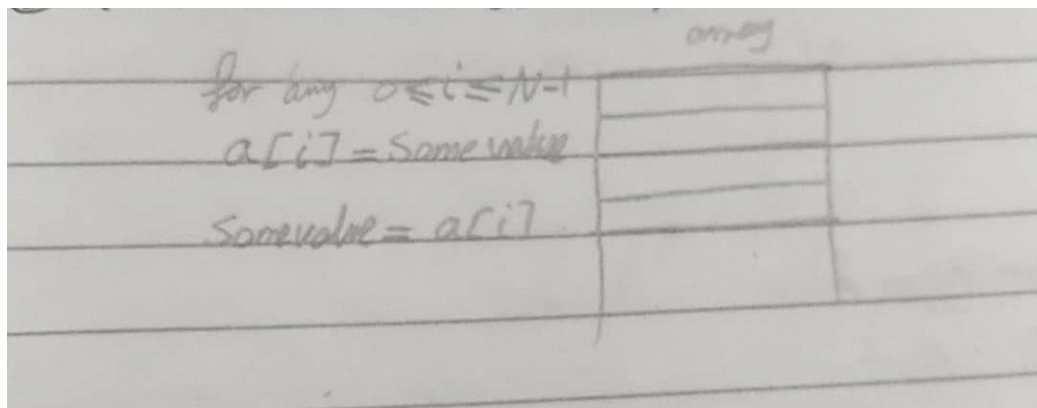 array
for any 0 ≤ i ≤ N-1
a[i] = Some value
Somevalue = a[i]